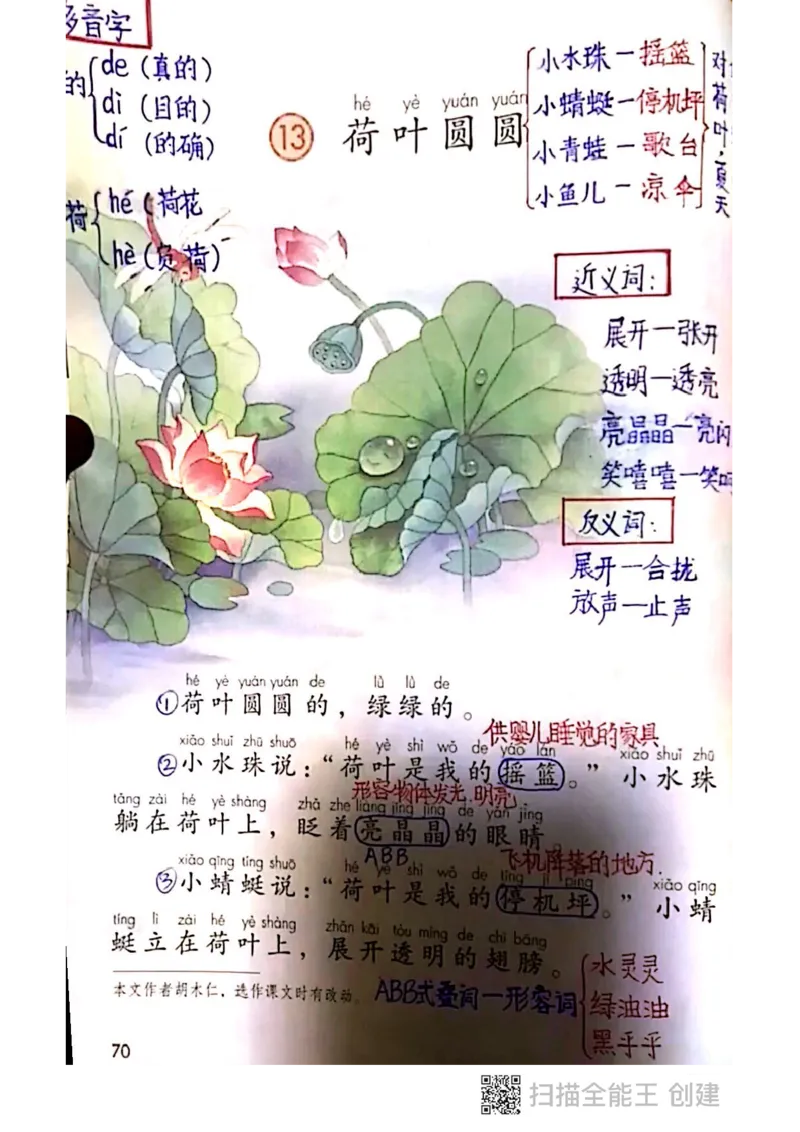 多音字
的
de（真的）
dì（目的）
dí（的确）
荷
hé（荷花
hè（负荷）
hé yè yuán yuán
13 荷叶圆圆
小水珠一摇篮
小蜻蜓一停机坪
小青蛙一歌台
小鱼儿一凉伞
对
荷
叶
夏
天
近义词：
展开一张开
透明一透亮
亮晶晶一亮闪
笑嘻嘻一笑
反义词：
展开一合拢
放声一止声
hé yè yuán yuán de lǜ lǜ de
①荷叶圆圆的，绿绿的。
供婴儿睡觉的家具
xiǎo shuǐ zhū shuō hé yè shì wǒ de yáo lán xiǎo shuǐ zhū
②小水珠说：“荷叶是我的摇篮。”小水珠
形容物体发光.明亮
tǎng zài hé yè shàng zhǎ zhe liàng jīng jīng de yǎn jīng
躺在荷叶上，眨着亮晶晶的眼睛
ABB
飞机降落的地方.
xiǎo qīng tíng shuō hé yè shì wǒ de tíng jī píng xiǎo qīng
③小蜻蜓说：“荷叶是我的停机坪。”小蜻
tíng lì zài hé yè shàng zhǎn kāi tòu míng de chì bǎng
蜓立在荷叶上，展开透明的翅膀。
本文作者胡木仁，选作课文时有改动。
ABB式叠词一形容词
水灵灵
绿油油
黑乎乎
70
扫描全能王 创建